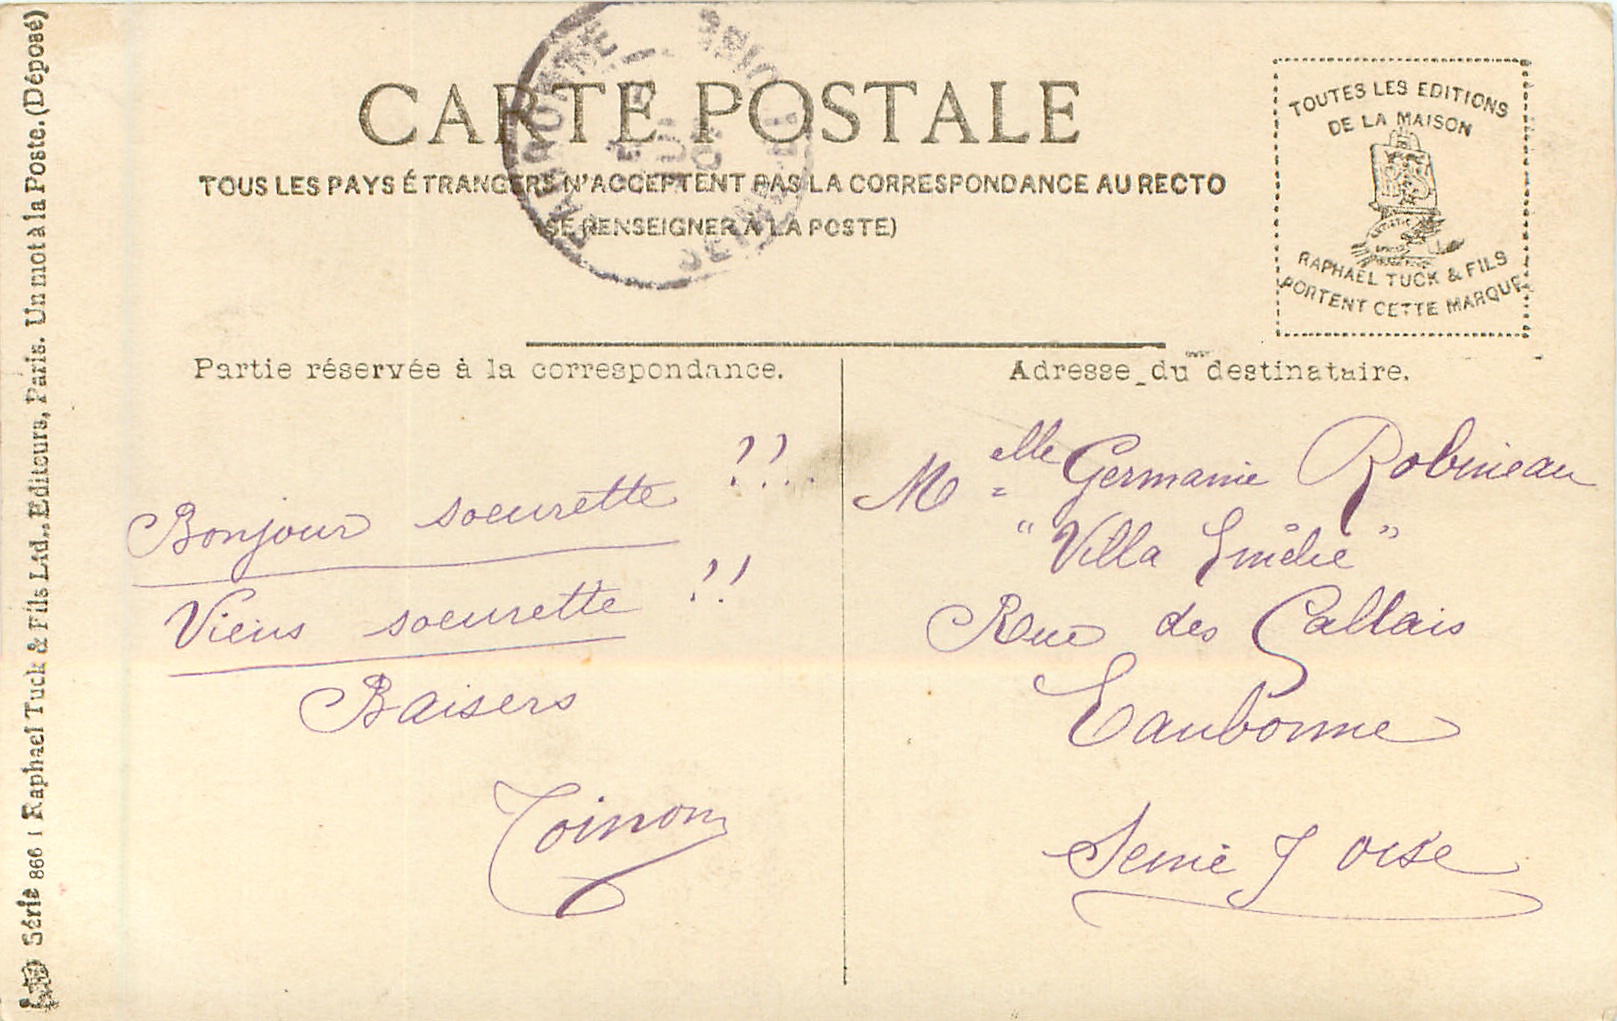 CARTE POSTALE
TOUS LES PAYS ÉTRANGERS N'ACCEPTENT PAS LA CORRESPONDANCE AU RECTO
(SE RENSEIGNER A LA POSTE)
EAUBONNE
SEINE-ET-OISE
TOUTES LES EDITIONS
DE LA MAISON
RAPHAEL TUCK & FILS
PORTENT CETTE MARQUE
Partie réservée à la correspondance.
Bonjour soeurette !!
Viens soeurette !!
Baisers
Toinon
Adresse du destinataire.
Melle Germaine Robineau
"Villa Emilie"
Rue des Callais
Eaubonne
Seine & Oise
Série 866 | Raphael Tuck & Fils Ltd., Editeurs, Paris. Un mot à la Poste. (Déposé)